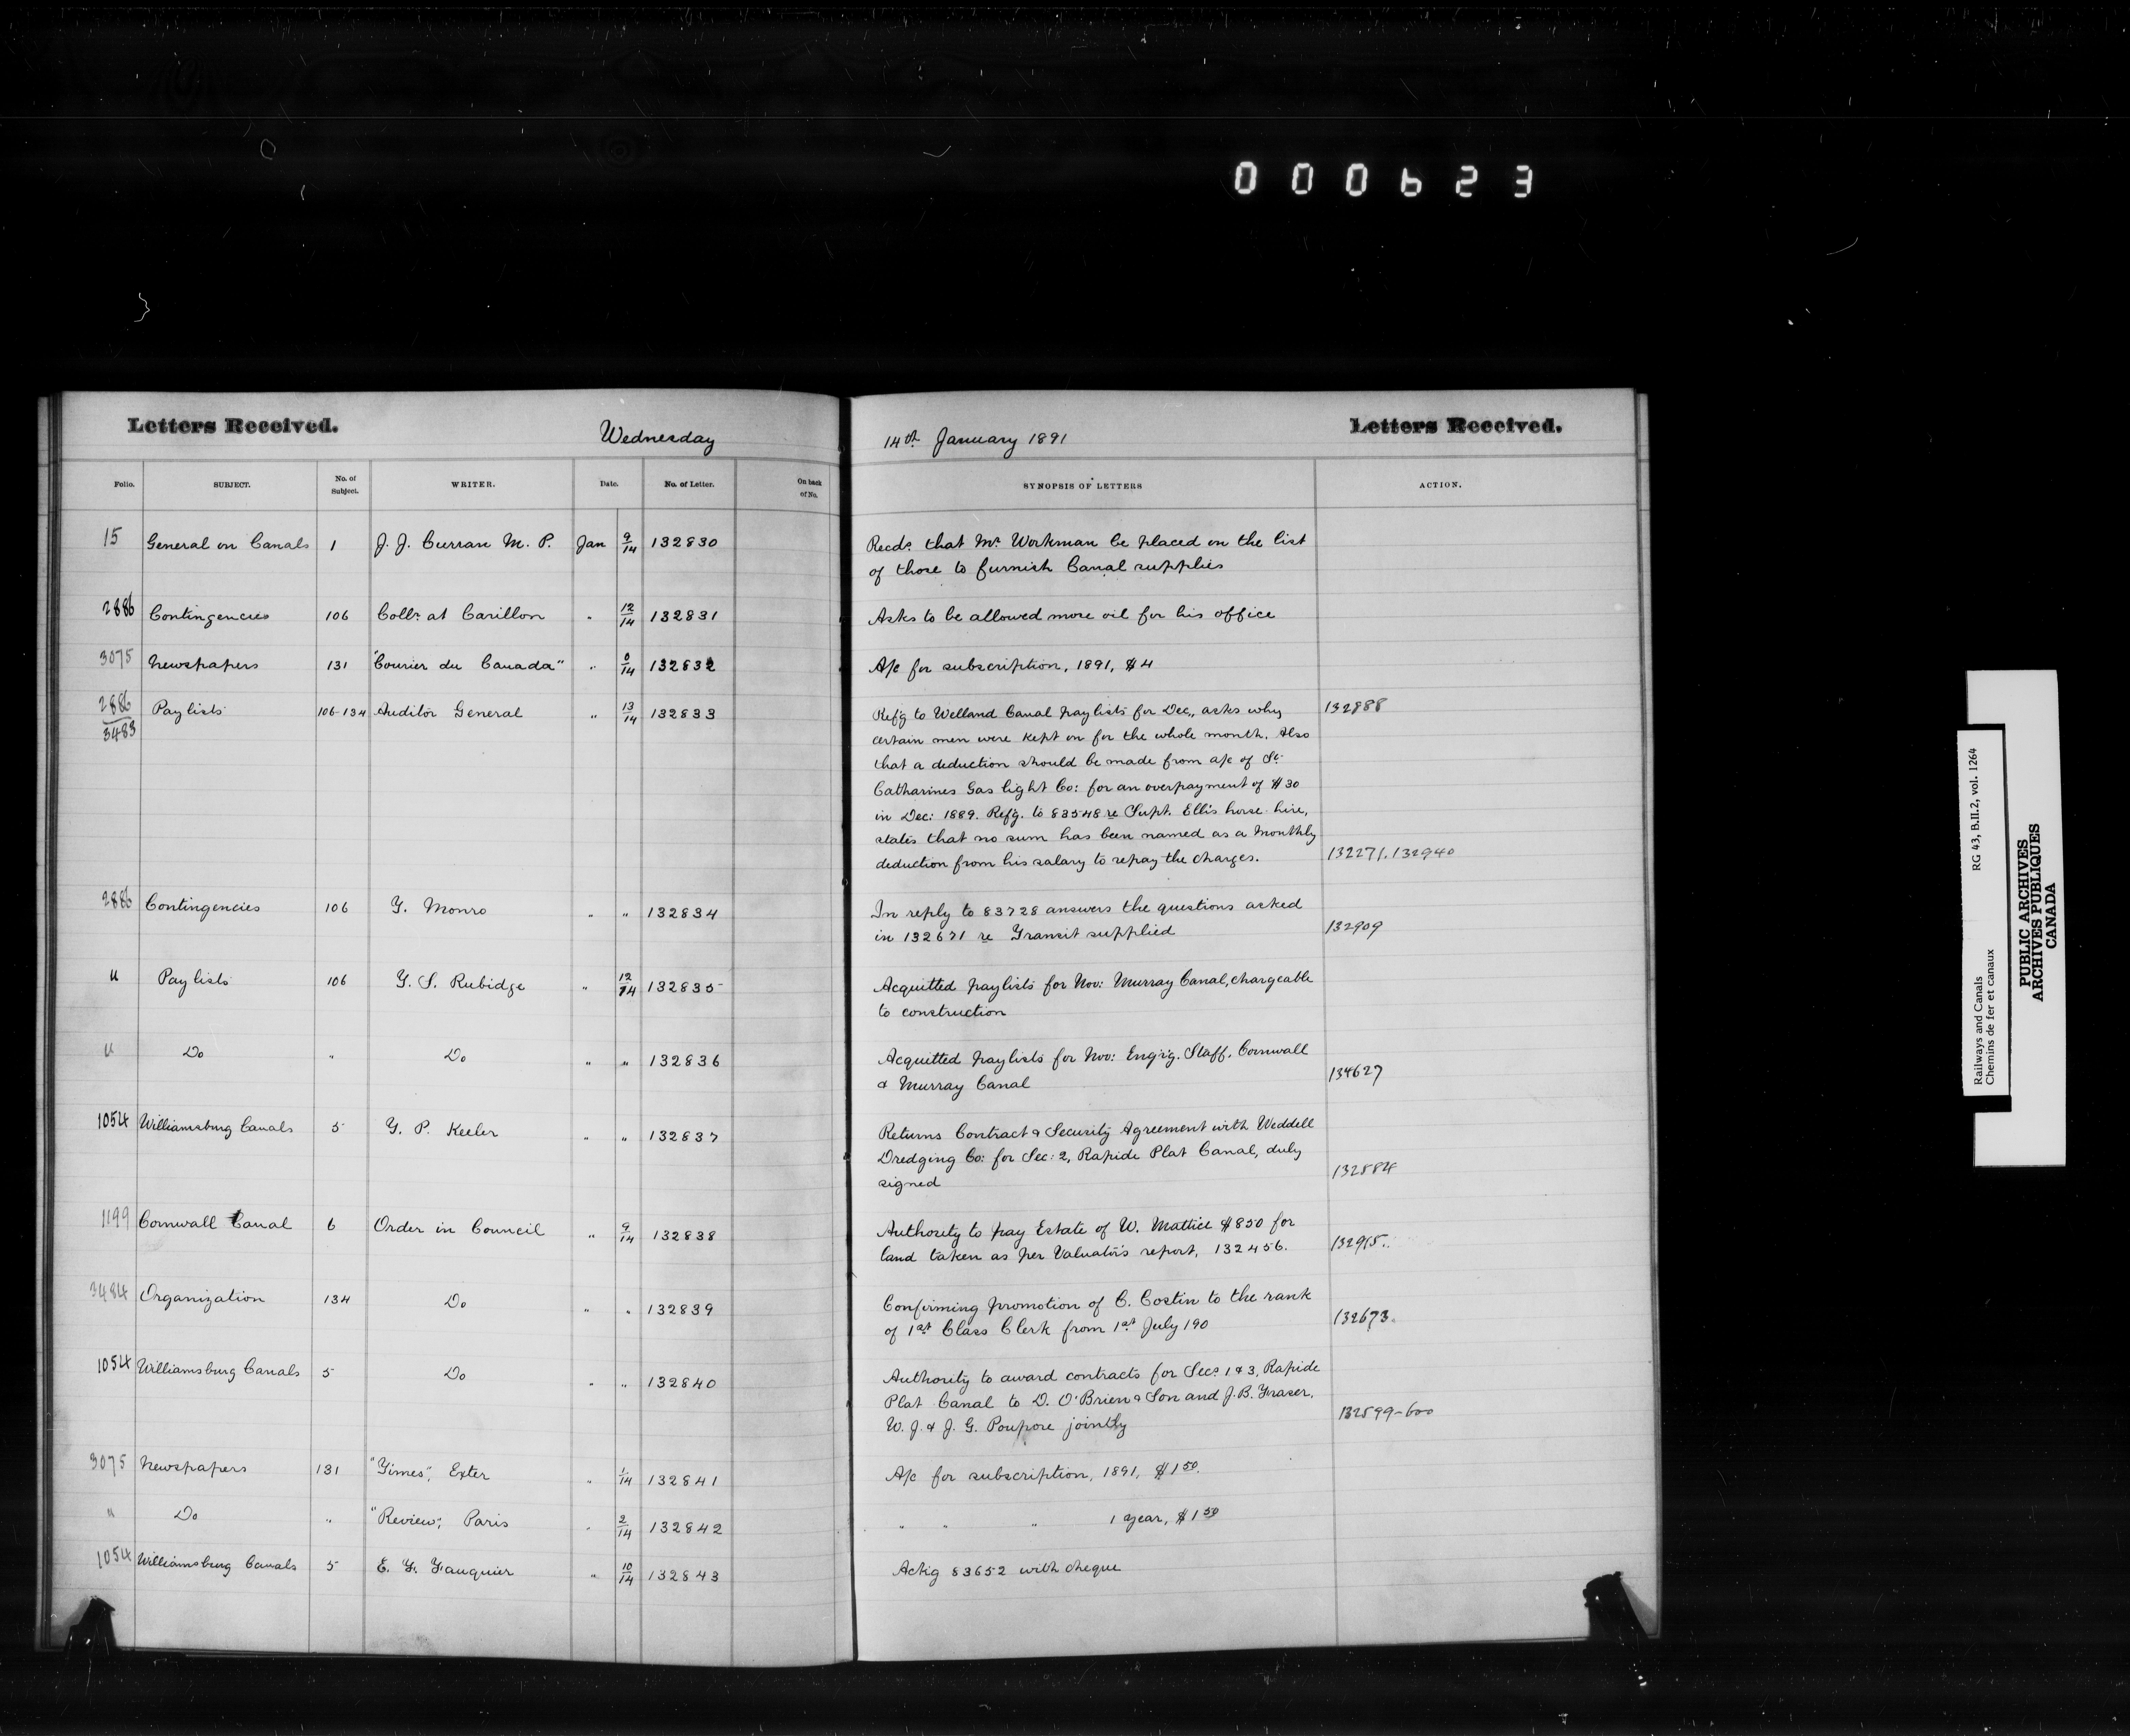 000623
Letters Received.
Wednesday
14th January 1891
Letters Received.
Folio. SUBJECT. No. of Subject. WRITER. Date. No. of Letter. On back of No. SYNOPSIS OF LETTERS ACTION.
15 General on Canals 1 J. J. Curran M. P. Jan 9/14 132830 Recds. that Mr. Workman be placed on the list
of those to furnish Canal supplies
2886 Contingencies 106 Collr. at Carillon " 12/14 132831 Asks to be allowed more oil for his office
3075 Newspapers 131 "Courier du Canada" " 8/14 132832 A/c for subscription, 1891, $4
2886/3483 Paylists 106-134 Auditor General " 13/14 132833 Refg to Welland Canal paylists for Dec., asks why 132888
certain men were kept on for the whole month. Also
that a deduction should be made from a/c of St.
Catharines Gas light Co: for an overpayment of $30
in Dec: 1889. Refg. to 83548 re Supt. Ellis horse-hire,
states that no sum has been named as a monthly
deduction from his salary to repay the charges. 132271.132940
2886 Contingencies 106 T. Monro " " 132834 In reply to 83728 answers the questions asked
in 132671 re Transit supplied 132909
" Paylists 106 T. S. Rubidge " 12/14 132835 Acquitted paylists for Nov: Murray Canal, chargeable
to construction
" Do " Do " " 132836 Acquitted paylists for Nov: Eng'r'g. Staff. Cornwall
& Murray Canal 134627
1054 Williamsburg Canals 5 G. P. Keeler " " 132837 Returns Contract & Security Agreement with Weddell
Dredging Co: for Sec: 2, Rapide Plat Canal, duly
signed 132884
1199 Cornwall Canal 6 Order in Council " 9/14 132838 Authority to pay Estate of W. Mattice $850 for
land taken as per Valuator's report, 132456. 132915.
3484 Organization 134 Do " " 132839 Confirming promotion of C. Costin to the rank
of 1st Class Clerk from 1st July 190 132673
1054 Williamsburg Canals 5 Do " " 132840 Authority to award contracts for Secs. 1 & 3, Rapide
Plat Canal to D. O'Brien & Son and J. B. Fraser,
W. J. & J. G. Poupore jointly 132599-600
3075 Newspapers 131 "Times", Exter " 1/14 132841 A/c for subscription, 1891, $1 50.
" Do " "Review", Paris " 2/14 132842 " " " 1 year, $1 50
1054 Williamsburg Canals 5 E. F. Fauquier " 10/14 132843 Ackg 83652 with cheque
Railways and Canals RG 43, B.II.2, vol. 1264
Chemins de fer et canaux
PUBLIC ARCHIVES
ARCHIVES PUBLIQUES
CANADA